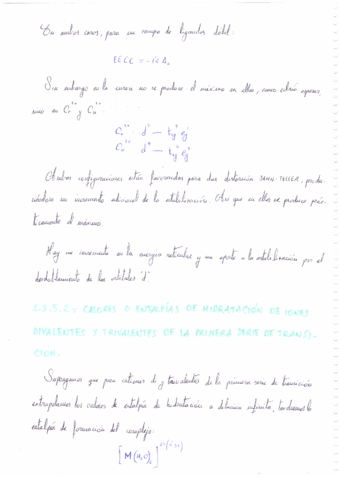 En ambos casos, para un campo de ligandos débil:
EECL = -1,2 Δo
Sin embargo en la curva no se produce el máximo en ellos, como cabría esperar,
sino en Cr⁺⁺ y Cu⁺⁺
Cr⁺⁺ d⁴ — t2g³ eg¹
Cu⁺⁺ d⁹ — t2g⁶ eg³
configuraciones están favorecidas para dar distorsión JAHN-TELLER, produ-
ciéndose un incremento adicional de la estabilización. Así que en ellos se produce prác-
ticamente el máximo.
Hay un incremento en la energía reticular y un aporte a la estabilización por el
desdoblamiento de los orbitales "d".
2.3.5.2.- CALORES O ENTALPÍAS DE HIDRATACIÓN DE IONES
DIVALENTES Y TRIVALENTES DE LA PRIMERA SERIE DE TRANSI-
CIÓN.
Supongamos que para cationes di y trivalentes de la primera serie de transición
extrapolamos los valores de entalpía de hidratación a dilución infinita, tendremos la
entalpía de formación del complejo:
[M(H₂O)₆]